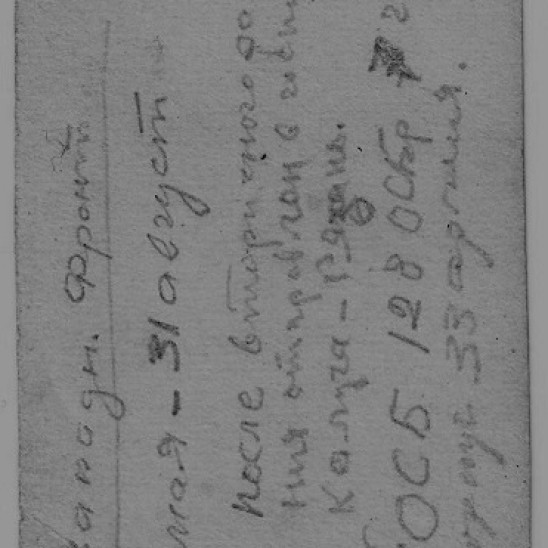 западн. фронт
мая - 31 август
после вторичного ра
ния отправлен в эв
Калуга - Рязань.
ОСБ 128 ОСБр 7
33 армия.